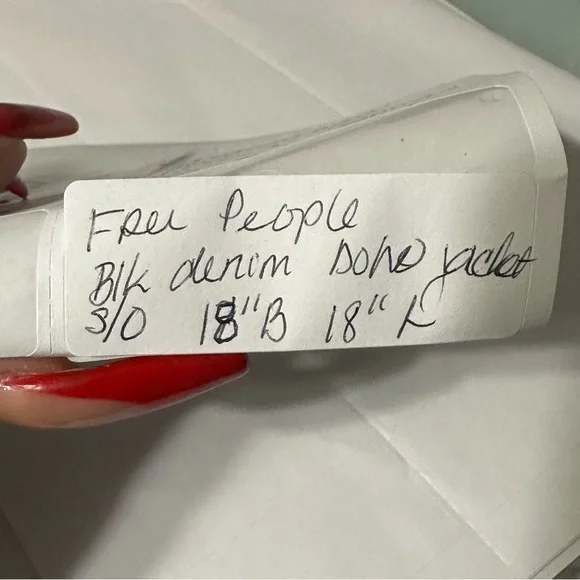 Free People
Blk denim boho jacket
S/O 18" B 18" L